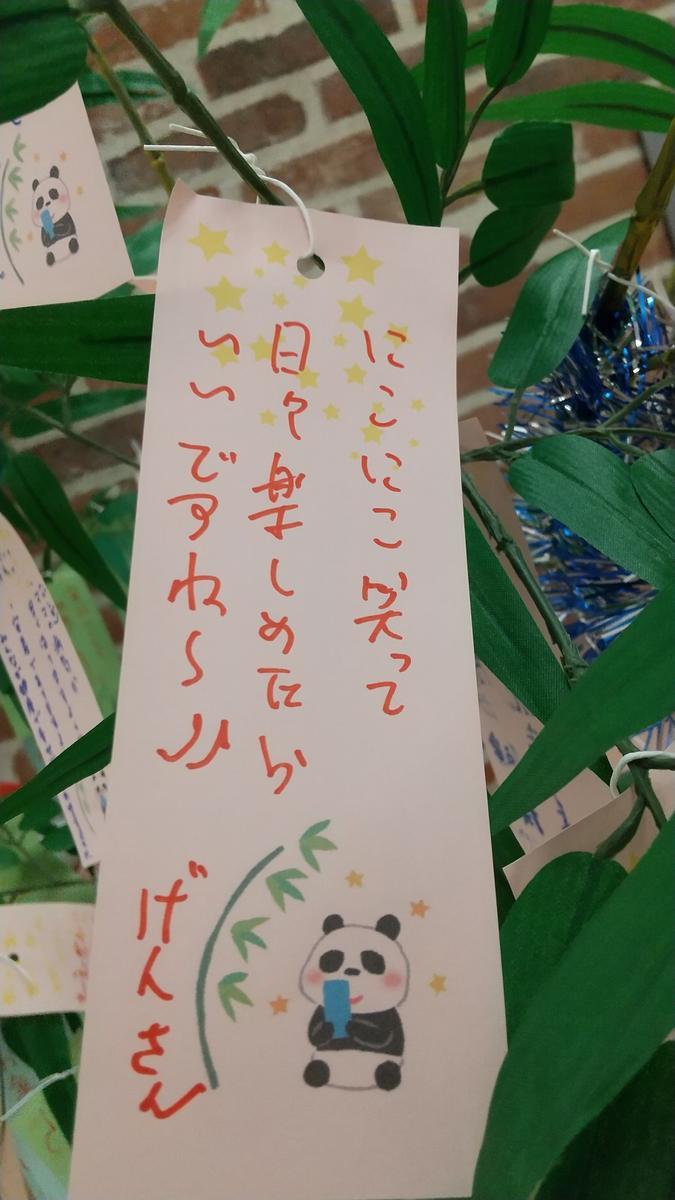 にこにこ笑って
日々楽しめたら
いいですね〜!!
げんさん